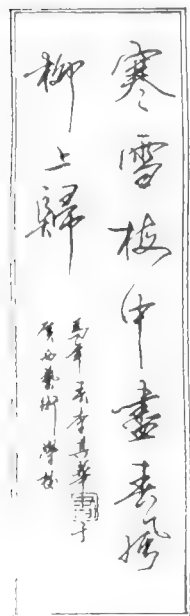 寒雪梅中盡春風
柳上歸
馬年春李其華于
廣西藝術學校